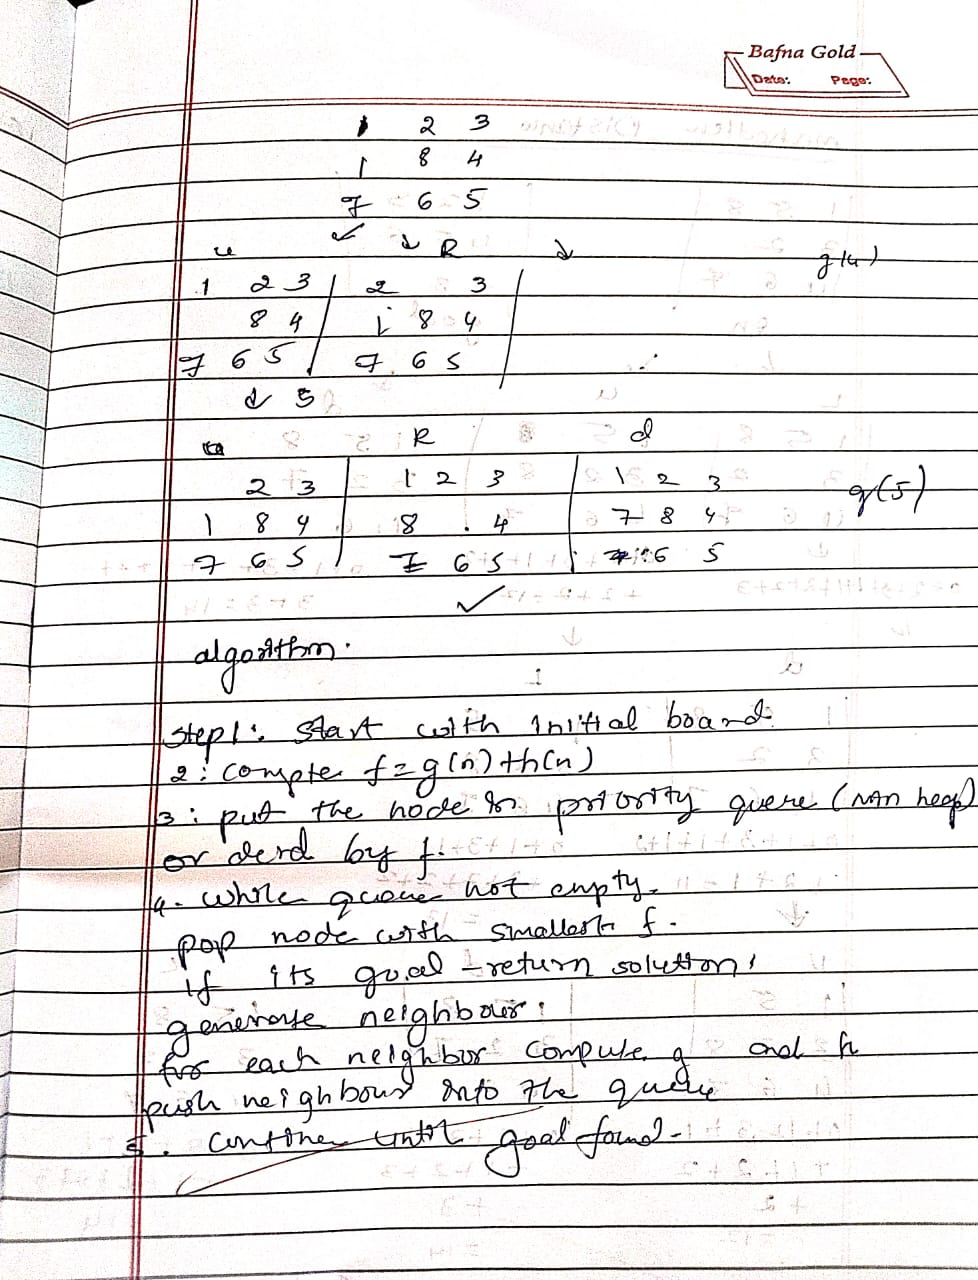 Bafna Gold
Date: Page:
2 3
1 8 4
7 6 5
✓ ↓ R ↓
u g(4)
1 2 3 | 2 3 |
8 4 | 1 8 4
7 6 5 | 7 6 5
d 5
R d
2 3 | 1 2 3 | 1 2 3 g(5)
1 8 4 | 8 . 4 | 7 8 4
7 6 5 | 7 6 5 | 6 5
✓
algorithm.
step1: Start with initial board
2: compte f=g(n)+h(n)
3: put the node in priority quere (min heap)
or derd by f.
4. while queue not empty.
pop node with smallest f.
if its goal - return solution
generate neighbour:
for each neighbor compute g and h
push neighbour into the queue
5. continue until goal found.